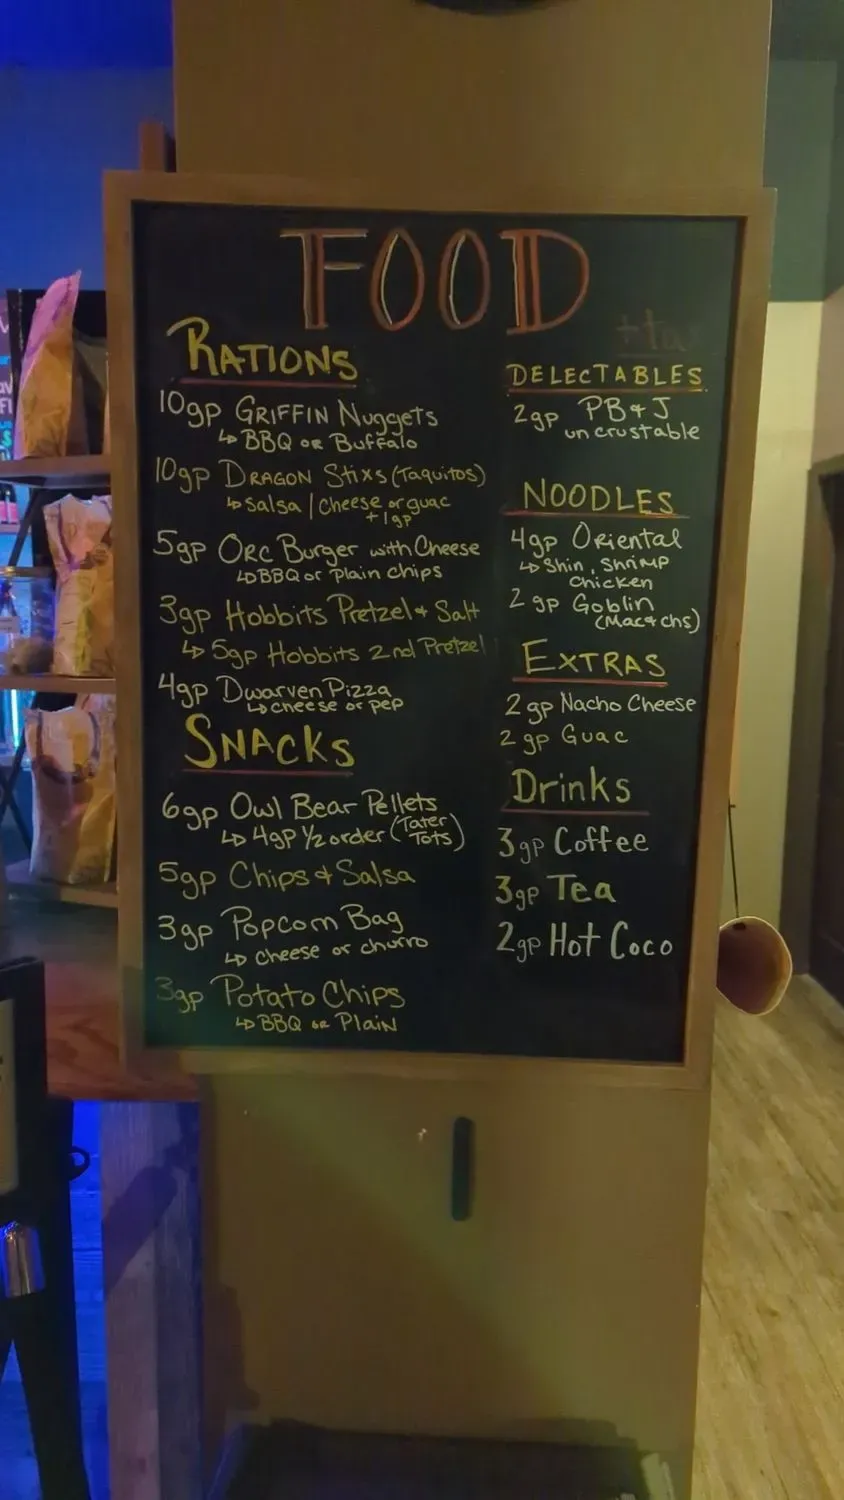 FOOD
RATIONS
10gp GRIFFIN Nuggets
↳ BBQ OR Buffalo
10gp DRAGON Stixs (Taquitos)
↳ Salsa / Cheese or guac
+1gp
5gp ORC Burger with Cheese
↳ BBQ or Plain chips
3gp Hobbits Pretzel + Salt
↳ 5gp Hobbits 2nd Pretzel
4gp Dwarven Pizza
↳ cheese or pep
SNACKS
6gp Owl Bear Pellets
↳ 4gp 1/2 order (Tater Tots)
5gp Chips & Salsa
3gp Popcorn Bag
↳ cheese or churro
3gp Potato Chips
↳ BBQ OR Plain
+ tax
DELECTABLES
2gp PB & J
uncrustable
NOODLES
4gp Oriental
↳ Shin, Shrimp
Chicken
2gp Goblin
(Mac & chs)
EXTRAS
2gp Nacho Cheese
2gp Guac
Drinks
3gp Coffee
3gp Tea
2gp Hot Coco